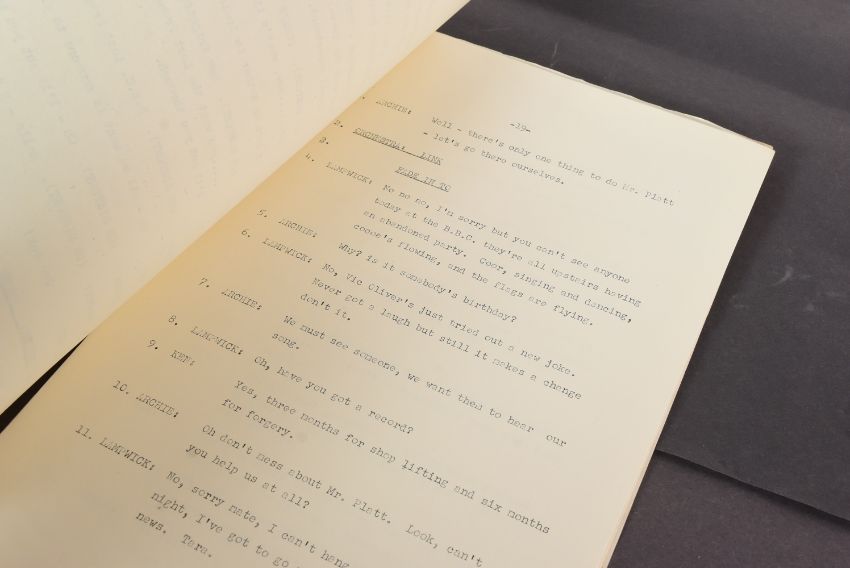 -19-
1. ARCHIE: Well - there's only one thing to do Mr. Platt
- let's go there ourselves.
2. ORCHESTRA: LINK
3. FADE IN TO
4. LAMPWICK: No no no, I'm sorry but you can't see anyone
today at the B.B.C. they're all upstairs having
an abandoned party. Coor, singing and dancing,
cocoa's flowing, and the flags are flying.
5. ARCHIE: Why? is it somebody's birthday?
6. LAMPWICK: No, Vic Oliver's just tried out a new joke.
Never got a laugh but still it makes a change
don't it.
7. ARCHIE: We must see someone, we want them to hear our
song.
8. LAMPWICK: Oh, have you got a record?
9. KEN: Yes, three months for shop lifting and six months
for forgery.
10. ARCHIE: Oh don't mess about Mr. Platt. Look, can't
you help us at all?
11. LAMPWICK: No, sorry mate, I can't hang
night, I've got to go
news. Tara.